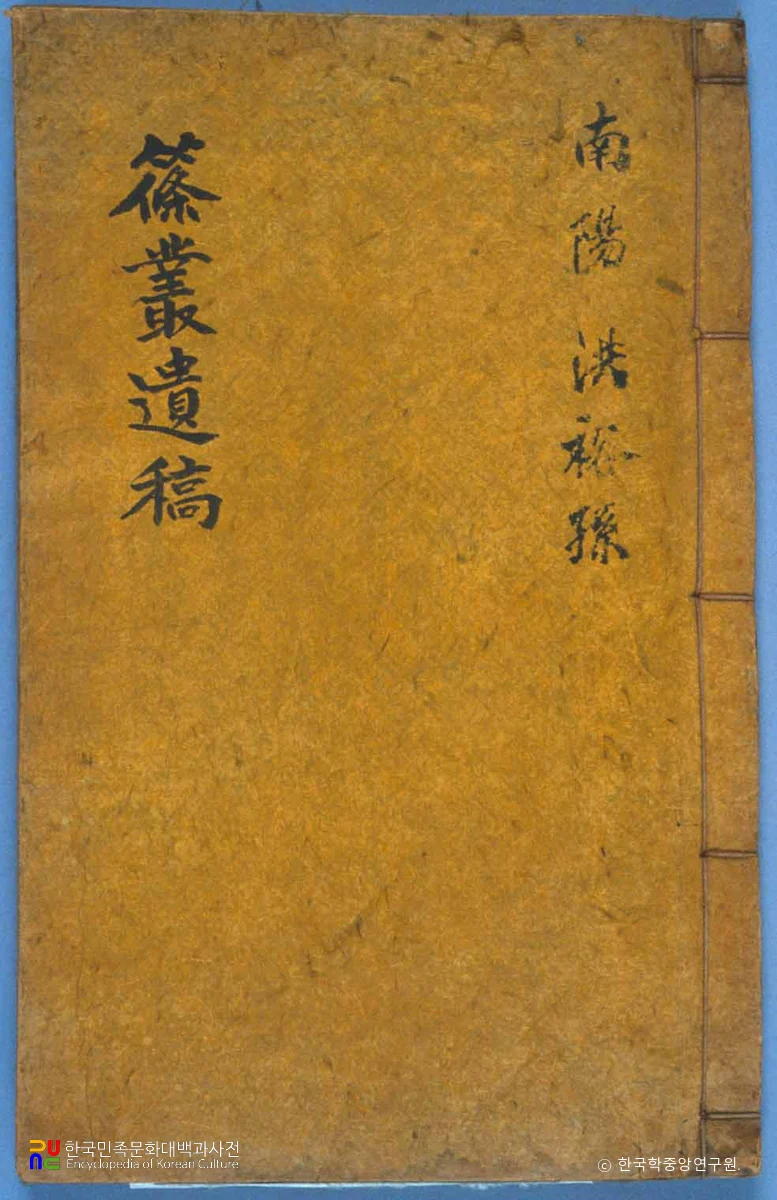 南陽洪裕孫
篠叢遺稿
한국민족문화대백과사전
Encyclopedia of Korean Culture
ⓒ 한국학중앙연구원